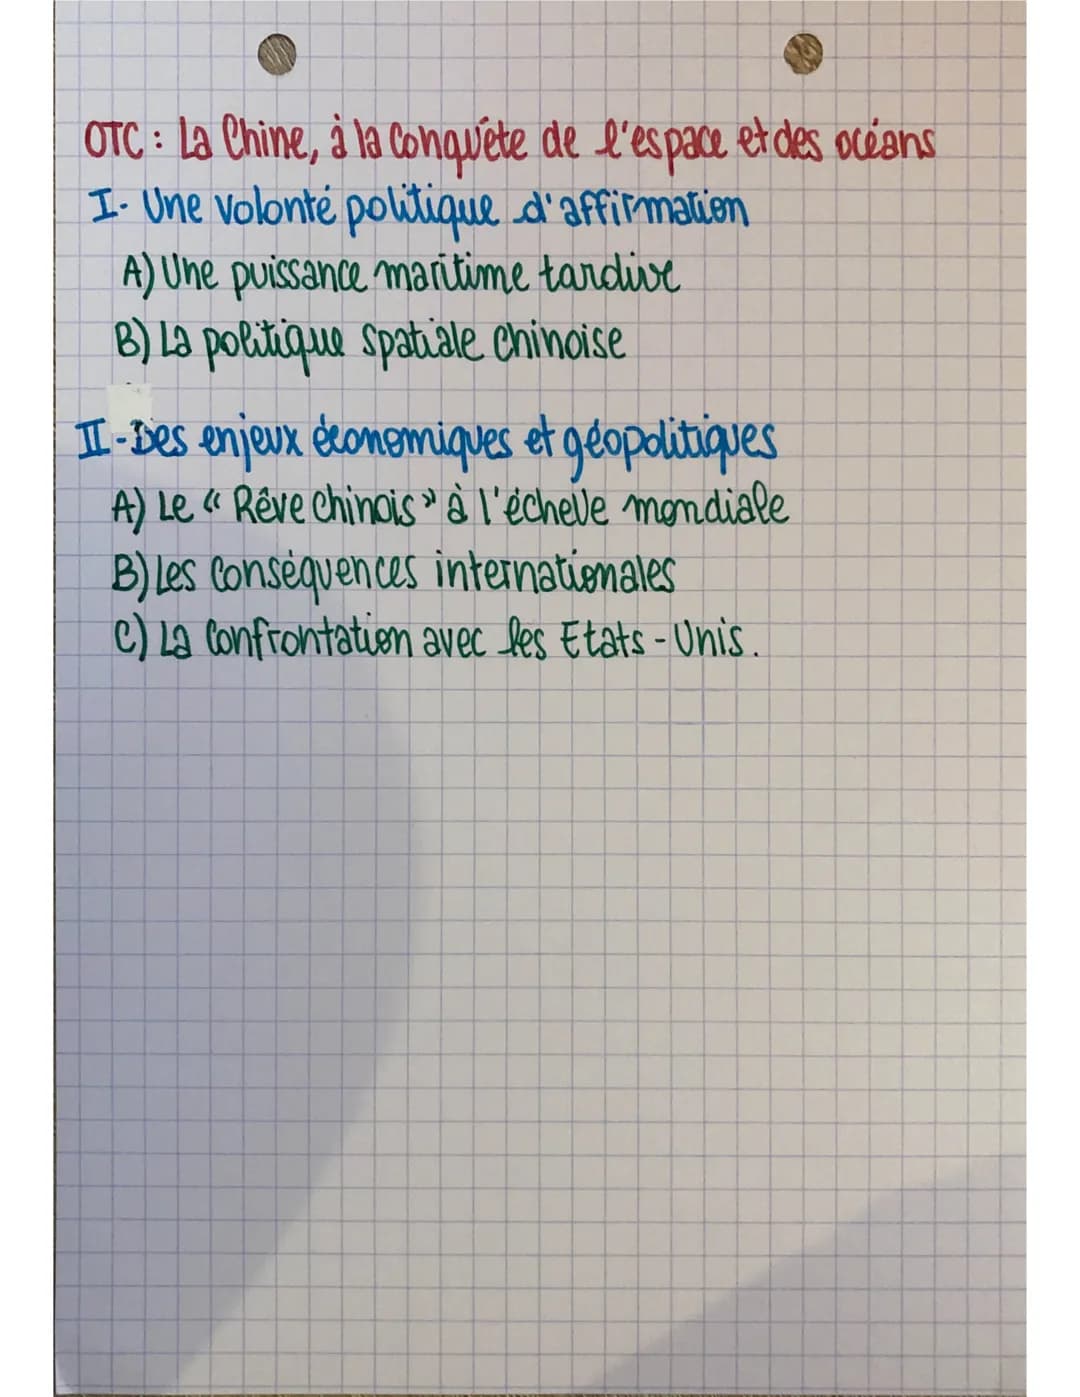 OTC : La Chine, à la Conquête de l'espace et des océans
I- Une volonté politique d'affirmation
A) Une puissance maritime tardive
B) La politique spatiale chinoise
II - Des enjeux économiques et géopolitiques
A) Le « Rêve chinois » à l'échelle mondiale
B) Les conséquences internationales
C) La Confrontation avec les Etats - Unis.